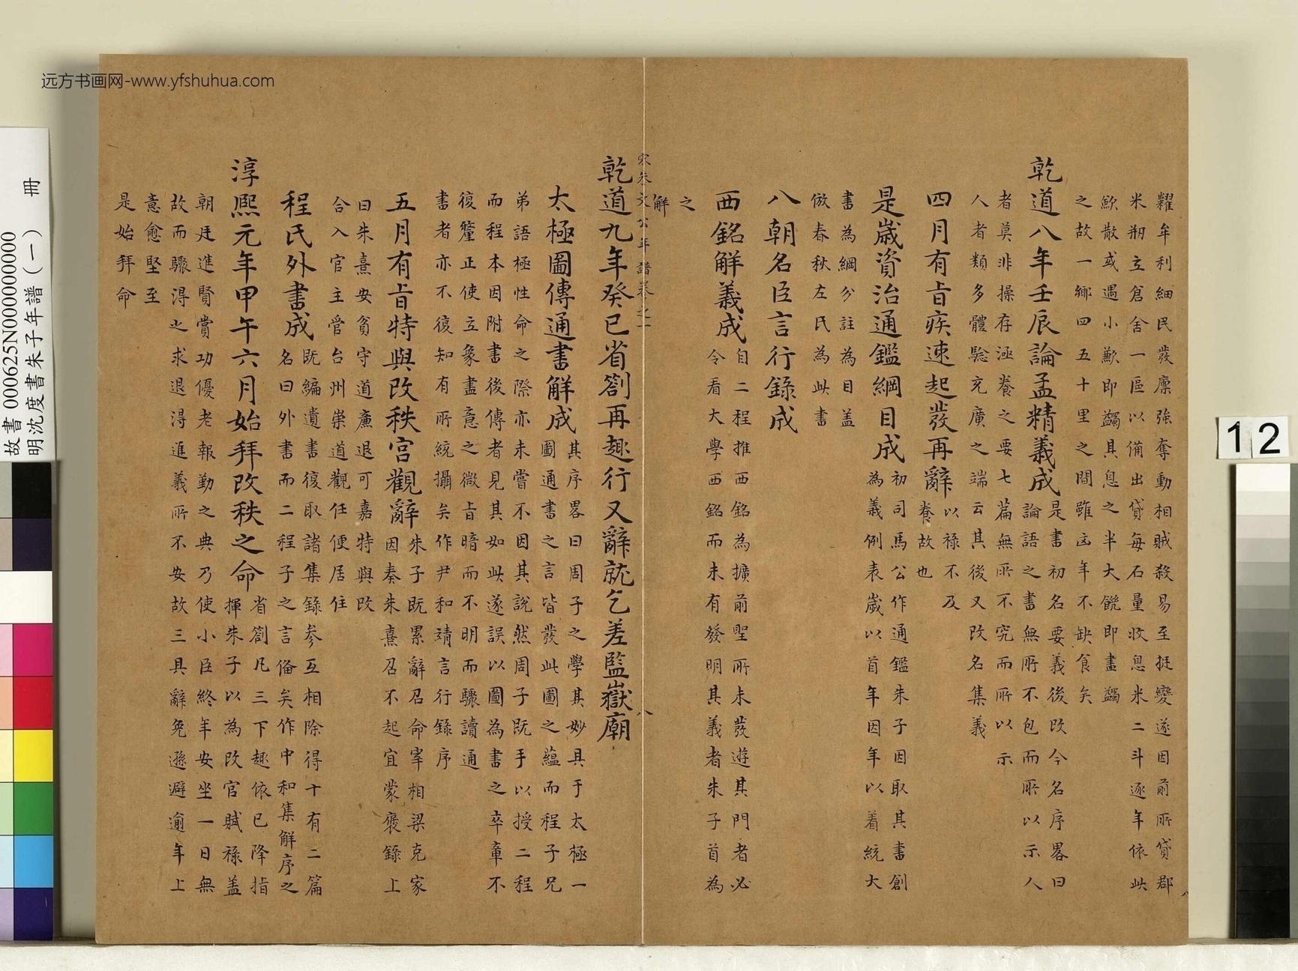 远方书画网-www.yfshuhua.com
糶牟利細民發廩強奪動相賊殺易至挺變遂因前所貸郡
米剏立倉舍一區以備出貸每石量收息米二斗逐年依此
歛散或遇小歉即蠲其息之半大饑即盡蠲
之故一鄉四五十里之間雖凶年不缺食矣
乾道八年壬辰論孟精義成
是書初名要義後改今名序畧曰
論語之書無所不包而所以示人
者莫非操存涵養之要七篇無所不究而所以示
人者類多體驗充廣之端云其後又改名集義
四月有旨疾速起發再辭
以祿不及
養故也
是歲資治通鑑綱目成
初司馬公作通鑑朱子因取其書創
為義例表歲以首年因年以着統大
書為綱分註為目蓋
倣春秋左氏為此書
八朝名臣言行錄成
西銘解義成
自二程推西銘為擴前聖所未發遊其門者必
令看大學西銘而未有發明其義者朱子首為
之
解
宋朱文公年譜卷之一
八
乾道九年癸巳省劄再趣行又辭就乞差監嶽廟
太極圖傳通書解成
其序畧曰周子之學其妙具于太極一
圖通書之言皆發此圖之蘊而程子兄
弟語極性命之際亦未嘗不因其說然周子既手以授二程
而程本因附書後傳者見其如此遂誤以圖為書之卒章不
復釐正使立象盡意之微旨暗而不明而驟讀通
書者亦不復知有所統攝矣作尹和靖言行錄序
五月有旨特與改秩宮觀辭
朱子既累辭召命宰相梁克家
因奏朱熹召不起宜蒙褒錄上
曰朱熹安貧守道廉退可嘉特與改
合入官主管台州崇道觀任便居住
程氏外書成
既編遺書復取諸集錄參互相除得十有二篇
名曰外書而二程子之言偹矣作中和集解序之
淳熙元年甲午六月始拜改秩之命
省劄凡三下趣依已降指
揮朱子以為改官賦祿盖
朝廷進賢賞功優老報勤之典乃使小臣終年安坐一日無
故而驟得之求退得進義所不安故三具辭免遜避逾年上
意愈堅至
是始拜命
故書000625N000000000
明沈度書朱子年譜(一) 冊
12